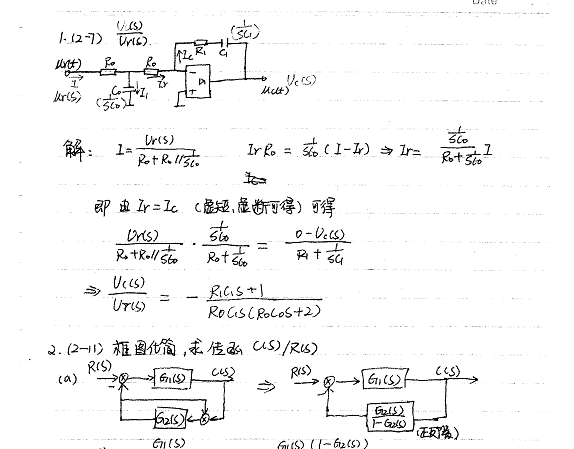 Date
1.(2-7) Uc(s)/Ur(s)
(1/sC1)
R1 C1
ur(t) R0 R0 Ic
I Ir
C0 I1 uc(t) Uc(s)
Ur(s) (1/sC0)
解: I = Ur(s)/(R0+R0//1/sC0) IrR0 = 1/sC0 (I-Ir) ⇒ Ir = (1/sC0)/(R0+1/sC0) I
即由 Ir=Ic (虚短,虚断可得) 可得
Ur(s)/(R0+R0//1/sC0) · (1/sC0)/(R0+1/sC0) = (0-Uc(s))/(R1+1/sC1)
⇒ Uc(s)/Ur(s) = - (R1C1s+1)/(R0C1s(R0C0s+2))
2.(2-11) 框图化简,求传函 C(s)/R(s)
(a) R(s) G1(s) C(s) ⇒ R(s) G1(s) C(s)
G2(s) G2(s)/(1-G2(s))
G1(s) G1(s)(1-G2(s))